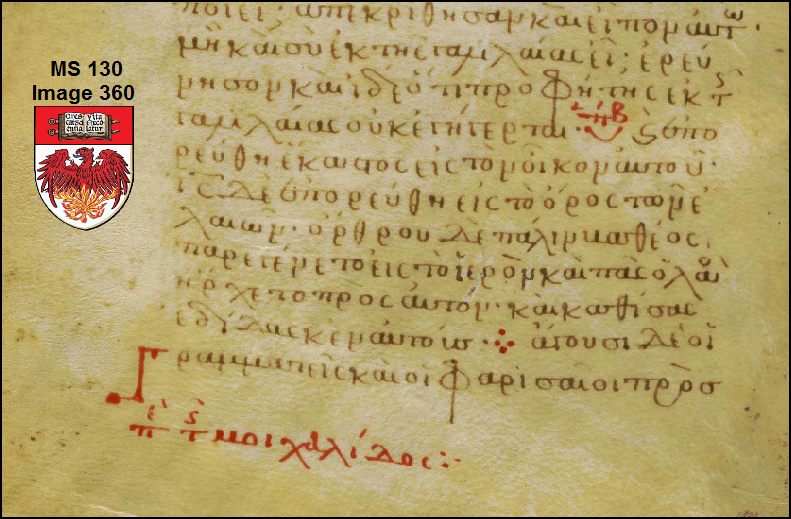 MS 130
Image 360
ποιεῖ; ἀπεκρίθησαν καὶ εἶπον αὐτῶ·
μὴ καὶ σὺ ἐκ τῆς γαλιλαίας εἶ; ἐρεύ
νησον καὶ ἴδε ὅτι προφήτης ἐκ τῆς
γαλιλαίας οὐκ ἐγήγερται· καὶ ἐπο
ρεύθη ἕκαστος εἰς τὸν οἶκον αὐτοῦ·
ις δὲ ἐπορεύθη εἰς τὸ ὄρος τῶν ἐ
λαιῶν· ὄρθρου δὲ πάλιν
παρεγένετο εἰς τὸ ἱερὸν καὶ πᾶς ὁ λαὸς
ἤρχετο πρὸς αὐτόν· καὶ καθίσας
ἐδίδασκεν αὐτούς· ἄγουσι δὲ οἱ
Γραμματεῖς καὶ οἱ φαρισαῖοι πρὸς
μοιχαλίδος: